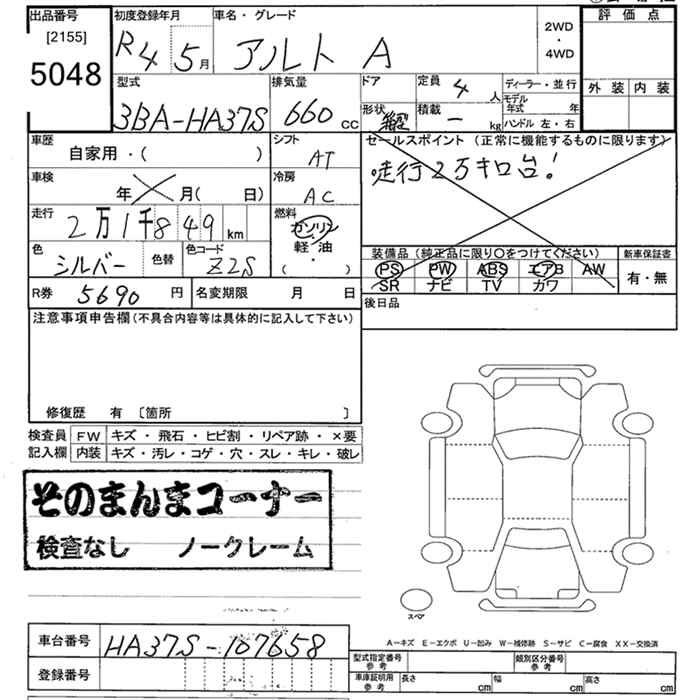 出品番号 [2155] 5048
初度登録年月 R4 5月
車名・グレード アルト A
2WD・4WD
評価点
外装 内装
型式 3BA-HA37S
排気量 660 cc
ドア
形状
定員 4 人
積載 - kg
ディーラー・並行
モデル年式 年
ハンドル 左・右
車歴 自家用・( )
シフト AT
セールスポイント (正常に機能するものに限ります)
走行2万キロ台!
車検 年 月( 日)
冷房 AC
走行 2万1千849 km
燃料 ガソリン 軽油 ( ・ )
色 シルバー 色替
色コード Z2S
装備品(純正品に限り○をつけてください)
新車保証書
PS PW ABS エアB AW
SR ナビ TV カワ
有・無
R券 5690 円
名変期限 月 日
後日品
注意事項申告欄(不具合内容等は具体的に記入して下さい)
修復歴 有 [箇所 ]
検査員 FW キズ・飛石・ヒビ割・リペア跡・×要
記入欄 内装 キズ・汚レ・コゲ・穴・スレ・キレ・破レ
そのまんまコーナー
検査なし ノークレーム
スペア
A−キズ E−エクボ U−凹み W−補修跡 S−サビ C−腐食 XX−交換済
車台番号 HA37S-107658
登録番号
型式指定番号 参考
類別区分番号 参考
車庫証明用 参考 長さ cm 幅 cm 高さ cm